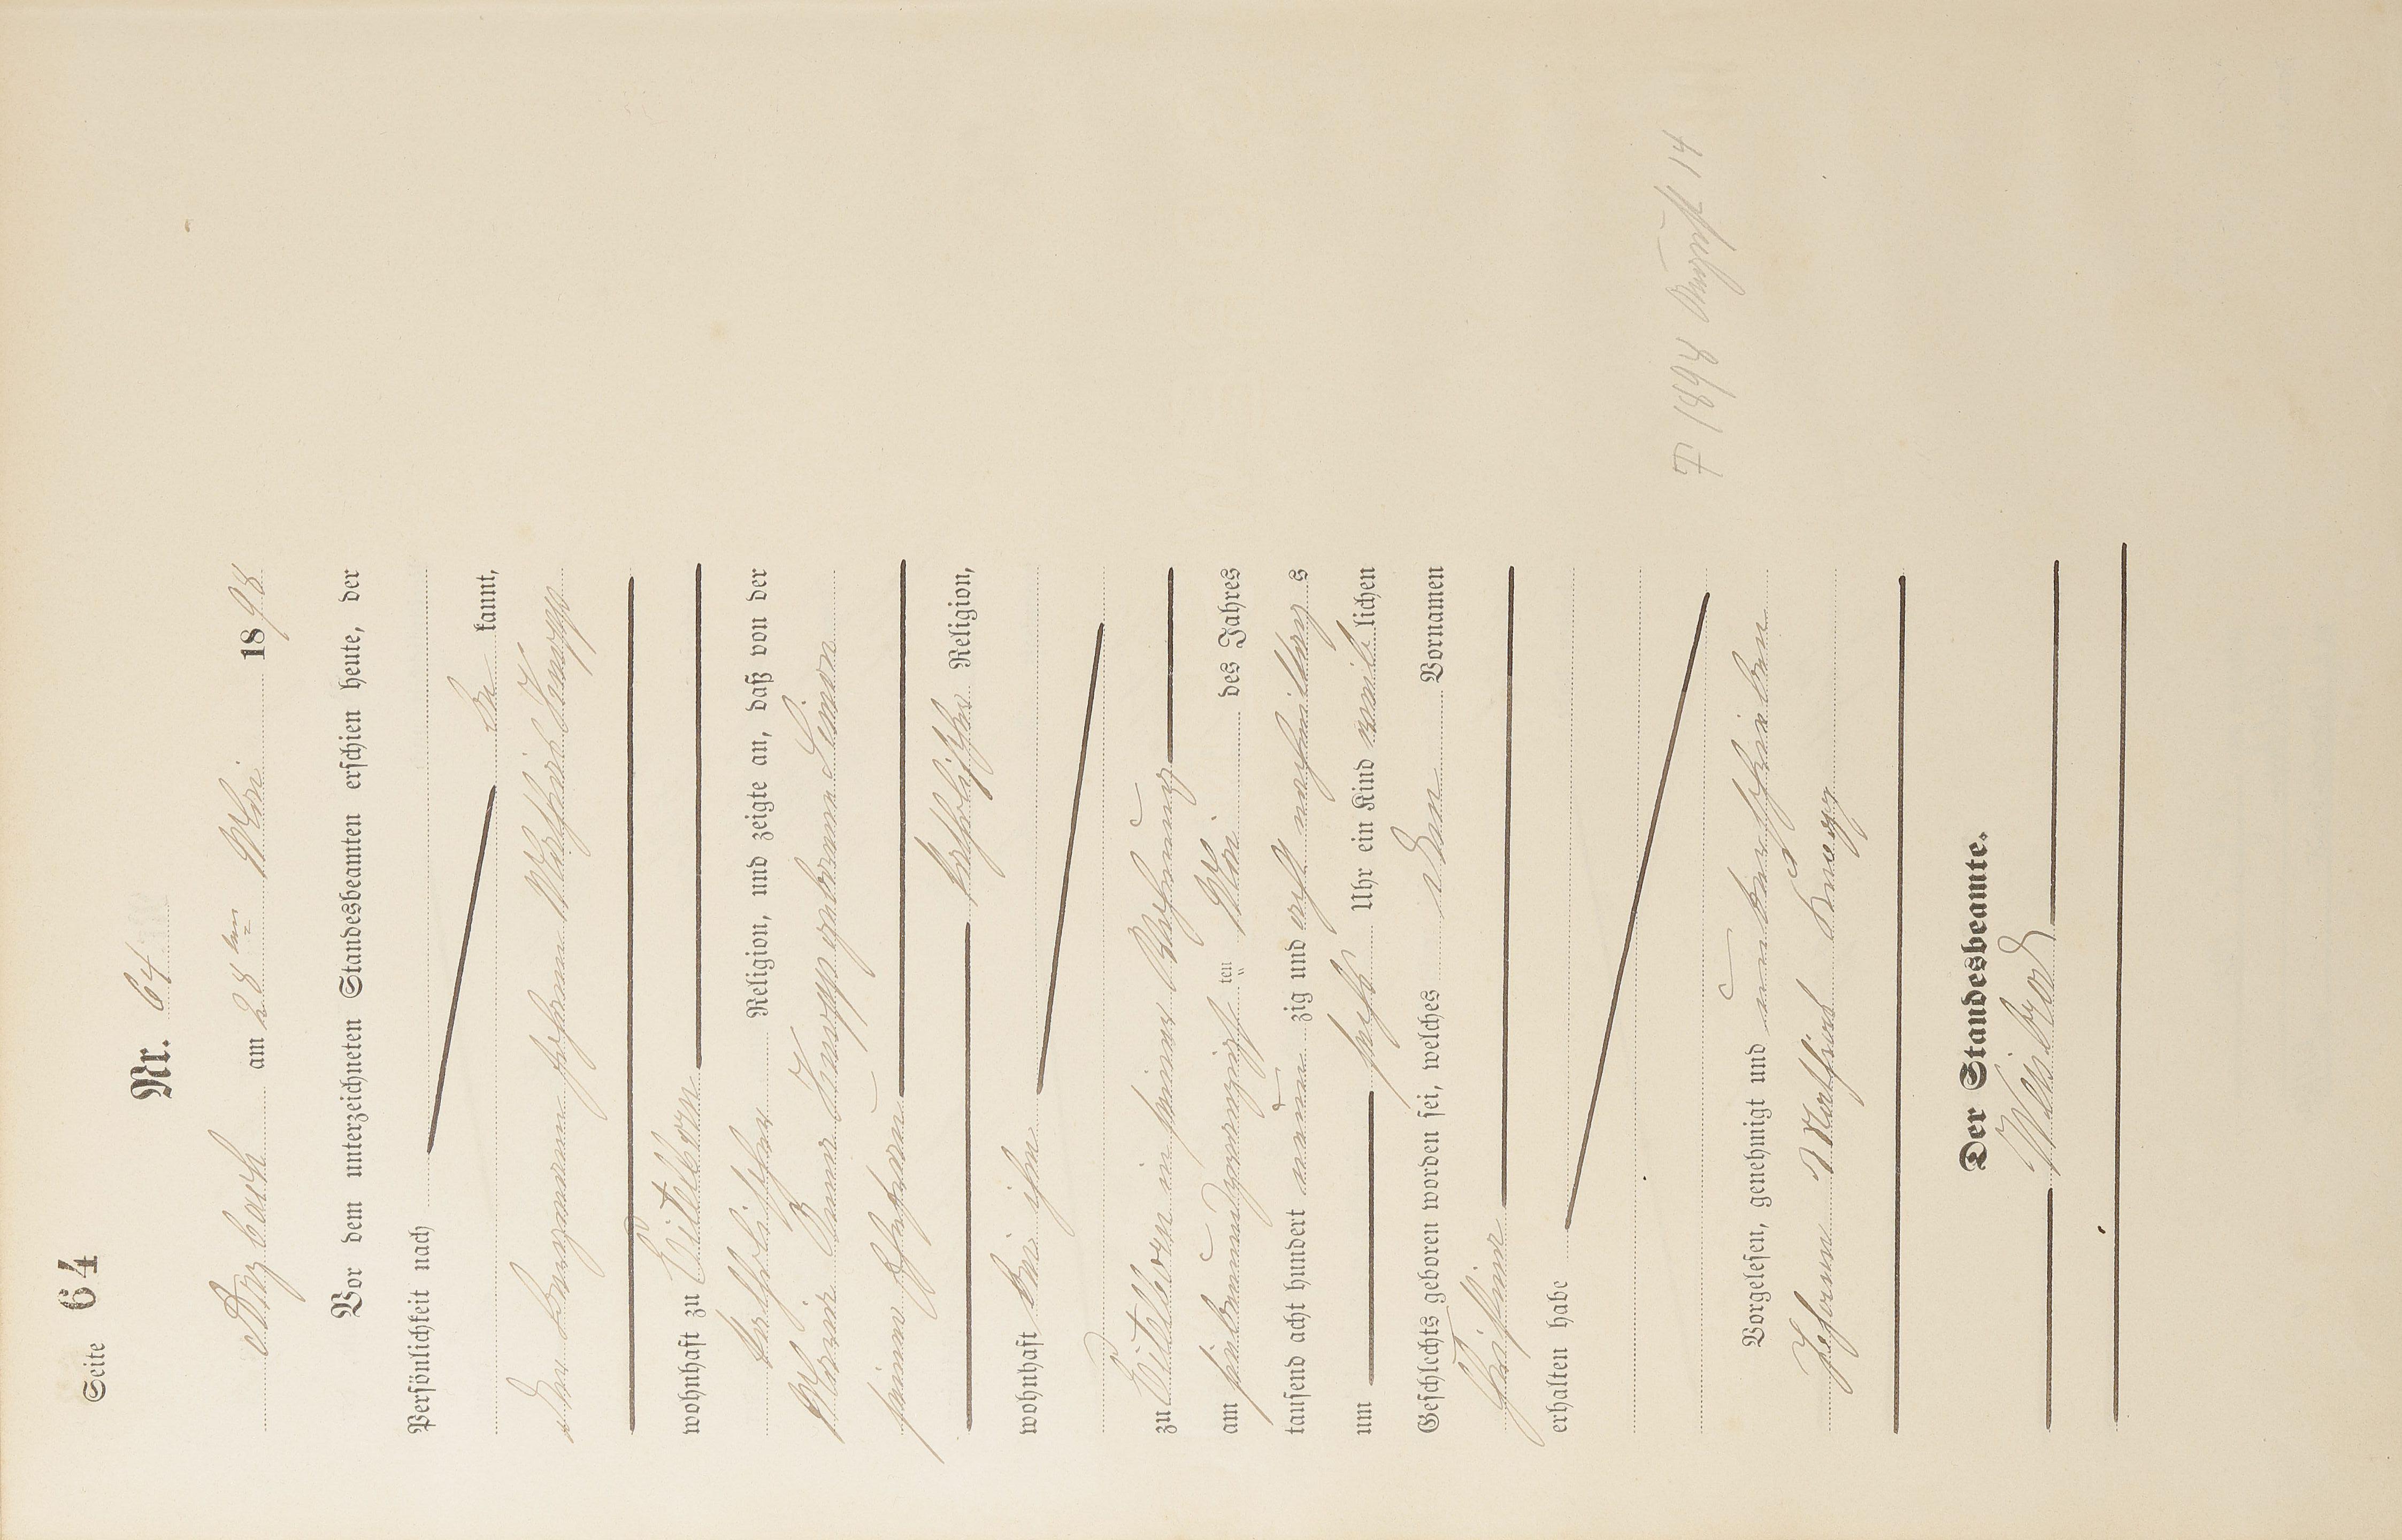 Seite 64
Nr. 64
Arzbach am 28ten Mai 1898
Vor dem unterzeichneten Standesbeamten erschien heute, der
Persönlichkeit nach
be kannt,
der Bergmann Johann Wilhelm Knopp
wohnhaft zu Eitelborn
katholischer Religion, und zeigte an, daß von der
Maria Anna Knopp geborenen Simon
seiner Ehefrau
katholischer Religion,
wohnhaft bei ihm
zu Eitelborn in seiner Wohnung
am siebenundzwanzigsten Mai des Jahres
tausend acht hundert neun zig und acht nachmittags
um sechs Uhr ein Kind weiblichen
Geschlechts geboren worden sei, welches den Vornamen
erhalten habe
Vorgelesen, genehmigt und unterschrieben
Johann Knopp
Der Standesbeamte.
† 1898 August 14